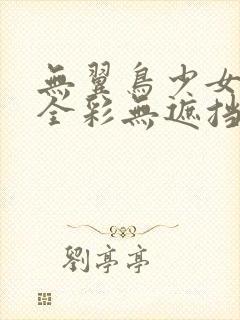 無翼鳥少女
全彩無遮挡
劉亭亭